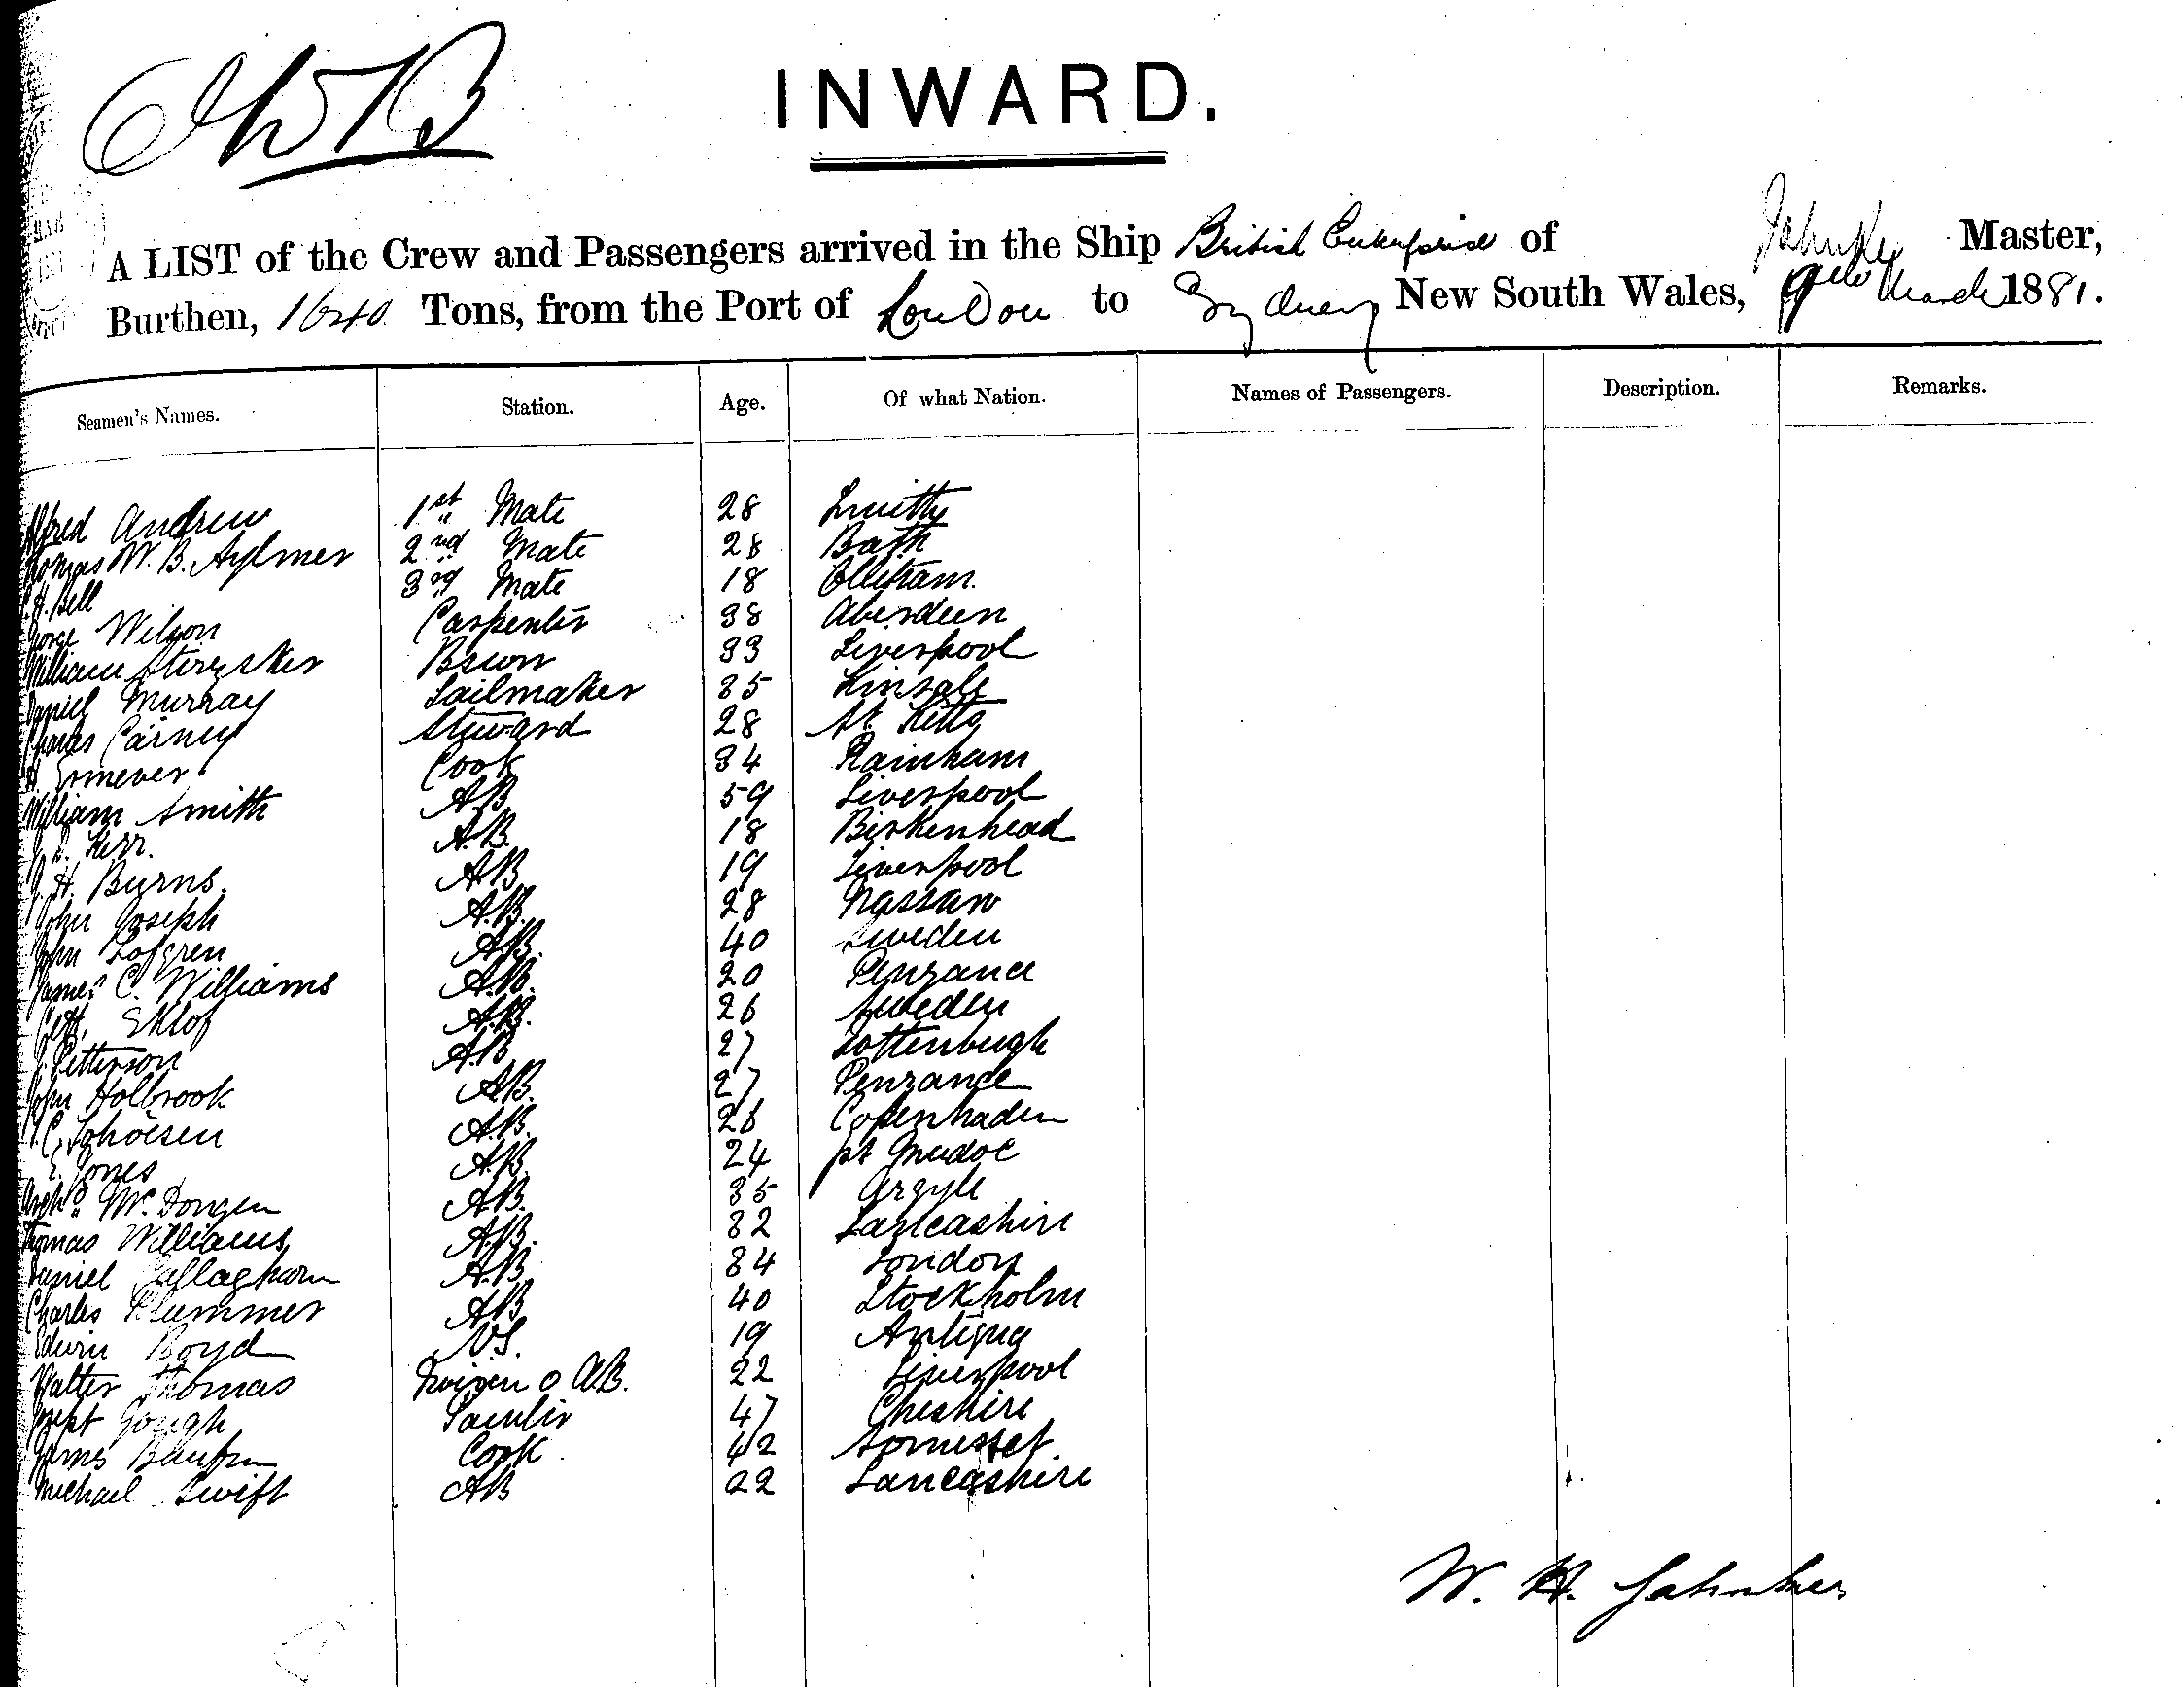 INWARD.
A LIST of the Crew and Passengers arrived in the Ship British Enterprise of Master,
Burthen, 1640 Tons, from the Port of London to Sydney New South Wales, 9th March 1881.
Seamen's Names. Station. Age. Of what Nation. Names of Passengers. Description. Remarks.
Alfred Andrew 1st Mate 28
Thomas W. B. Aylmer 2nd Mate 28 Bath
H. Bell 3rd Mate 18
George Wilson Carpenter 38 Aberdeen
William 33 Liverpool
Daniel Murray Sailmaker 35 Kinsale
Charles Carney Steward 28 St. Kitts
Cook 34 Rainham
William Smith A.B 59 Liverpool
Kerr. A.B. 18 Birkenhead
H. Byrns. A.B 19 Liverpool
John Joseph A.B. 28 Nassaw
John Lofgren A.B. 40 Sweden
James C. Williams A.B. 20 Penzance
Eklof A.B. 26 Sweden
Petterson A.B 27
John Holbrook A.B. 27 Penzance
A.B. 26 Copenhaden
E. Jones A.B. 24 pt Madoc
Mc A.B. 35 Argyle
Thomas Williams A.B. 32 Lancashire
Daniel A.B. 34 London
Charles Plummer A.B 40 Stockholm
Edwin Boyd 19 Antigua
Walter Thomas A.B. 22 Liverpool
Gough 47 Cheshire
James Cook 42 Somerset
Michael Swift AB 22 Lancashire
W. H.